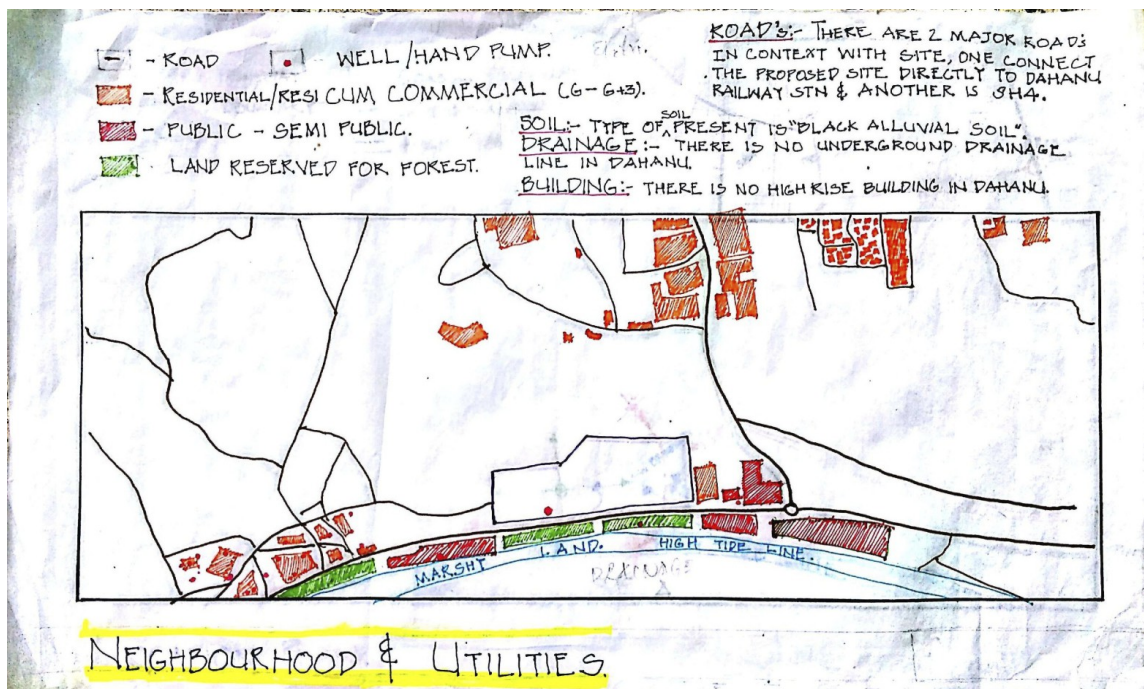 - ROAD
WELL/HAND PUMP.
- RESIDENTIAL/RESI CUM COMMERCIAL (G-G+3).
- PUBLIC - SEMI PUBLIC.
LAND RESERVED FOR FOREST.
ROAD'S:- THERE ARE 2 MAJOR ROAD'S
IN CONTEXT WITH SITE, ONE CONNECT
THE PROPOSED SITE DIRECTLY TO DAHANU
RAILWAY STN & ANOTHER IS SH4.
SOIL:- TYPE OF SOIL PRESENT IS "BLACK ALLUVIAL SOIL".
DRAINAGE:- THERE IS NO UNDERGROUND DRAINAGE
LINE IN DAHANU.
BUILDING:- THERE IS NO HIGH RISE BUILDING IN DAHANU.
MARSHY LAND. HIGH TIDE LINE.
DRAINAGE
NEIGHBOURHOOD & UTILITIES.